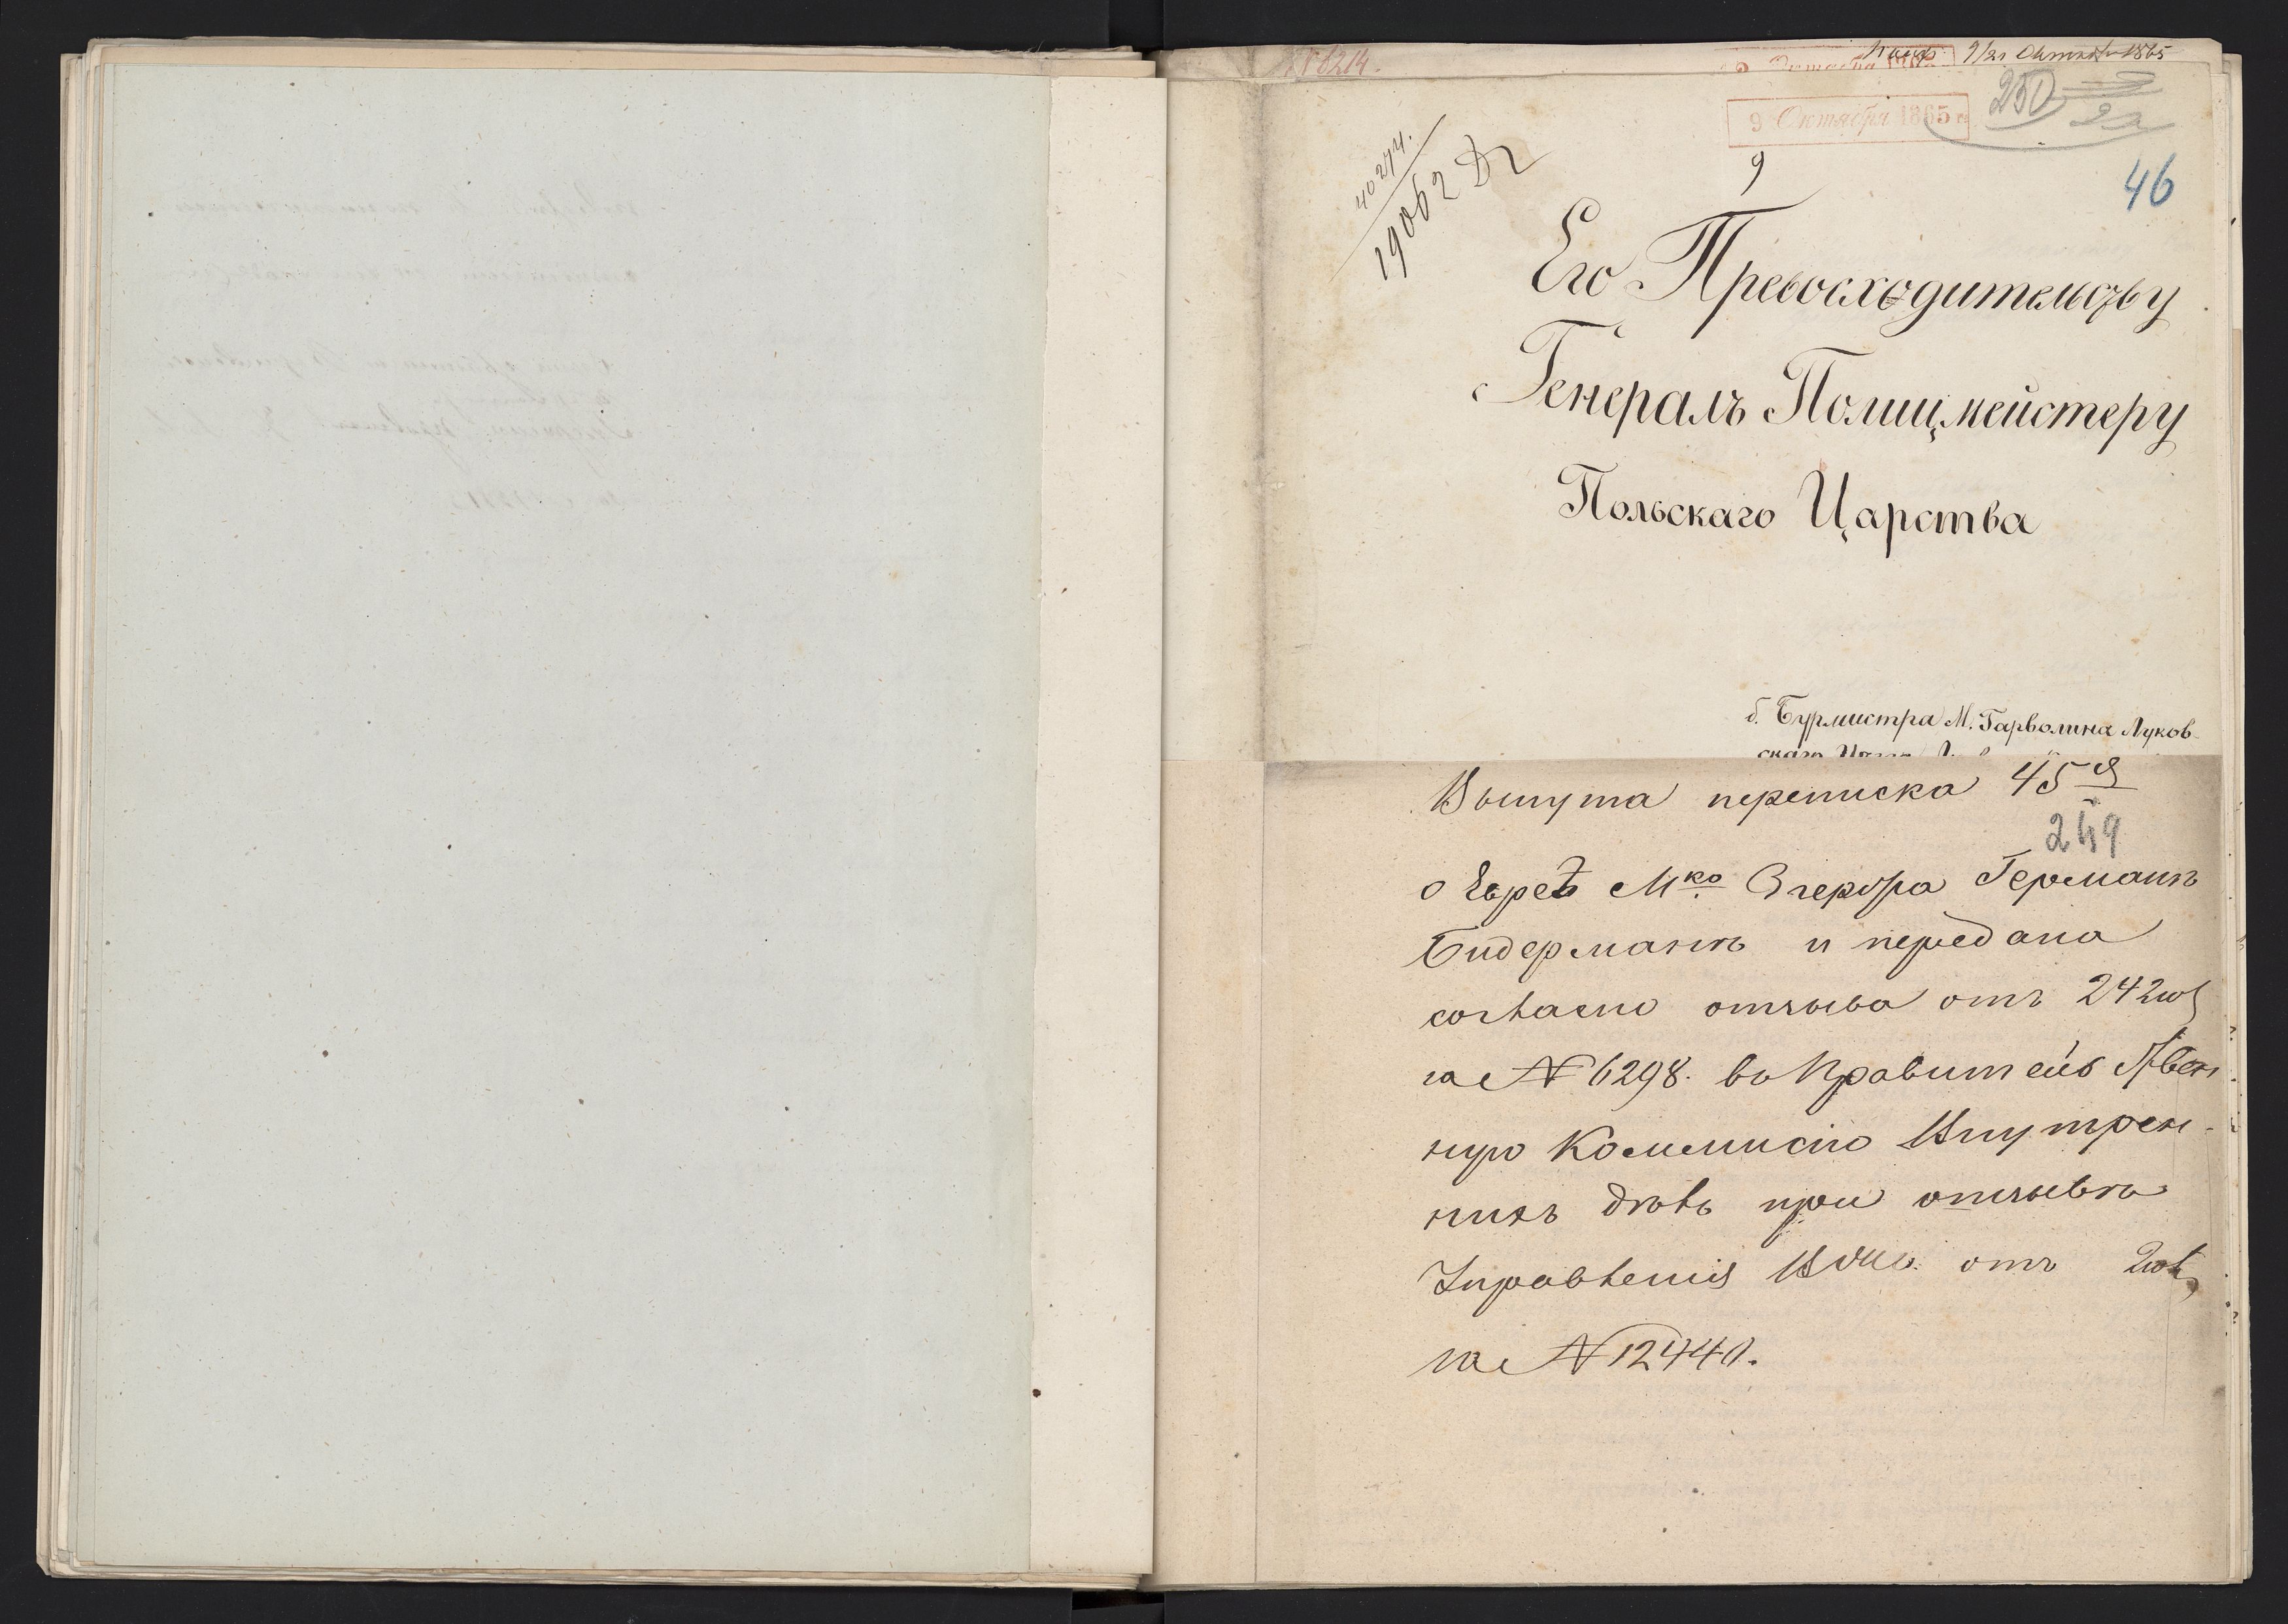 9/21 Октября 1865
9 Октября 1865
250
22
40274.
19062
9
46
Его Превосходительству
Генералъ Полицмейстеру
Польскаго Царства
б. Бурмистра М. Гарволина Луков-
скаго
Вынута переписка 45
249
о Евреѣ Мко Згержа Германѣ
Бидерманѣ и передана
согласно отзыва отъ 24 
за № 6298. въ Правительствен
ную Коммисію Внутрен-
нихъ дѣлъ при отзывѣ
Управленія отъ
за № 12440.